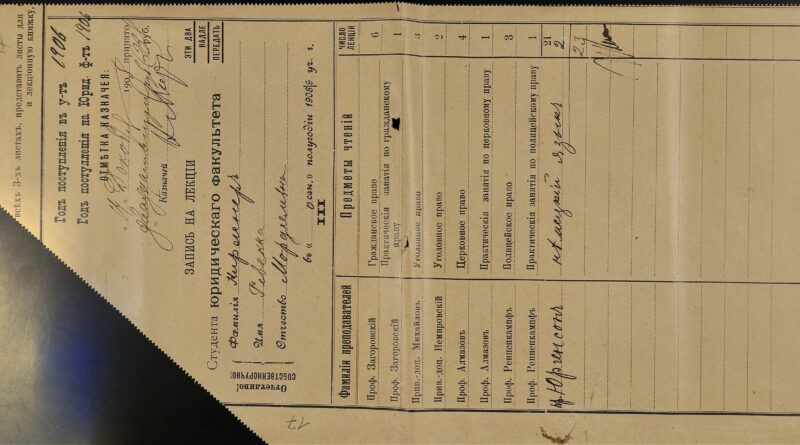 всѣхъ 3-хъ листахъ, представить листы для
и лекціонную книжку.
Годъ поступленія въ у-тъ 1906
Годъ поступленія на Юрид. ф-тъ 1906
ОТМѢТКА КАЗНАЧЕЯ:
190 принято
руб.
Казначей
ЭТИ ДВА
КАДЛЕ
ПЕРЕДАТЬ
ЗАПИСЬ НА ЛЕКЦІИ
Студента юридическаго факультета
Отчетливо!
СОБСТВЕННОРУЧНО:
Фамилія Киршнеръ
Имя Ревекка
Отчество Мордкевна
въ « осен.» полугодіи 1908/9 уч. г.
III
Фамиліи преподавателей Предметы чтеній ЧИСЛО ЛЕКЦІЙ
Проф. Загоровскій Гражданское право 6
Проф. Загоровскій Практическія занятія по гражданскому праву 1
Прив.-доц. Михайловъ Уголовное право 3
Прив.-доц. Немировскій Уголовное право 2
Проф. Алмазовъ Церковное право 4
Проф. Алмазовъ Практическія занятія по церковному праву 1
Проф. Ренненкампфъ Полицейское право 3
Проф. Ренненкампфъ Практическія занятія по полицейскому праву 1
21
Юргенсонъ нѣмецкій языкъ 2
23
17